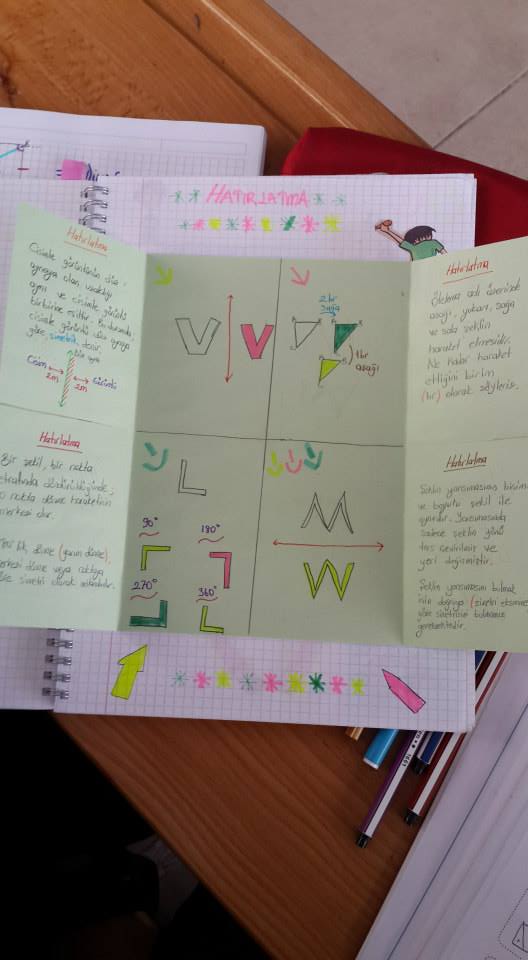 HATIRLATMA
Hatırlatma
Cisimle görüntünün düz
aynaya olan uzaklığı
aynı ve cisimle görüntü
birbirine eşittir. Bu durumda
cisimle görüntü düz aynaya
göre, simetrik denir.
Düz ayna
Cisim
Görüntü
2m
2m
V
V
2 br
sağa
1br
aşağı
Hatırlatma
Öteleme adı üzerinde
aşağı, yukarı, sağa
ve sola şeklin
hareket etmesidir.
Ne kadar hareket
ettiğini birim
(br) olarak söyleriz.
Hatırlatma
Bir şekil, bir nokta
etrafında döndürüldüğünde;
o nokta dönme hareketinin
merkezi dir.
lik dönme (yarım dönme),
merkezi dönme veya noktaya
göre simetri olarak adlandırılır.
L
90°
180°
270°
360°
M
W
Hatırlatma
Şeklin yansımasının biçimi
ve boyutu şekil ile
aynıdır. Yansımasında
sadece şeklin yönü
ters çevrilmiş ve
yeri değişmiştir.
Şeklin yansımasını bulmak
için doğruya (simetri eksenine)
göre simetrisini bulmamız
gerekmektedir.